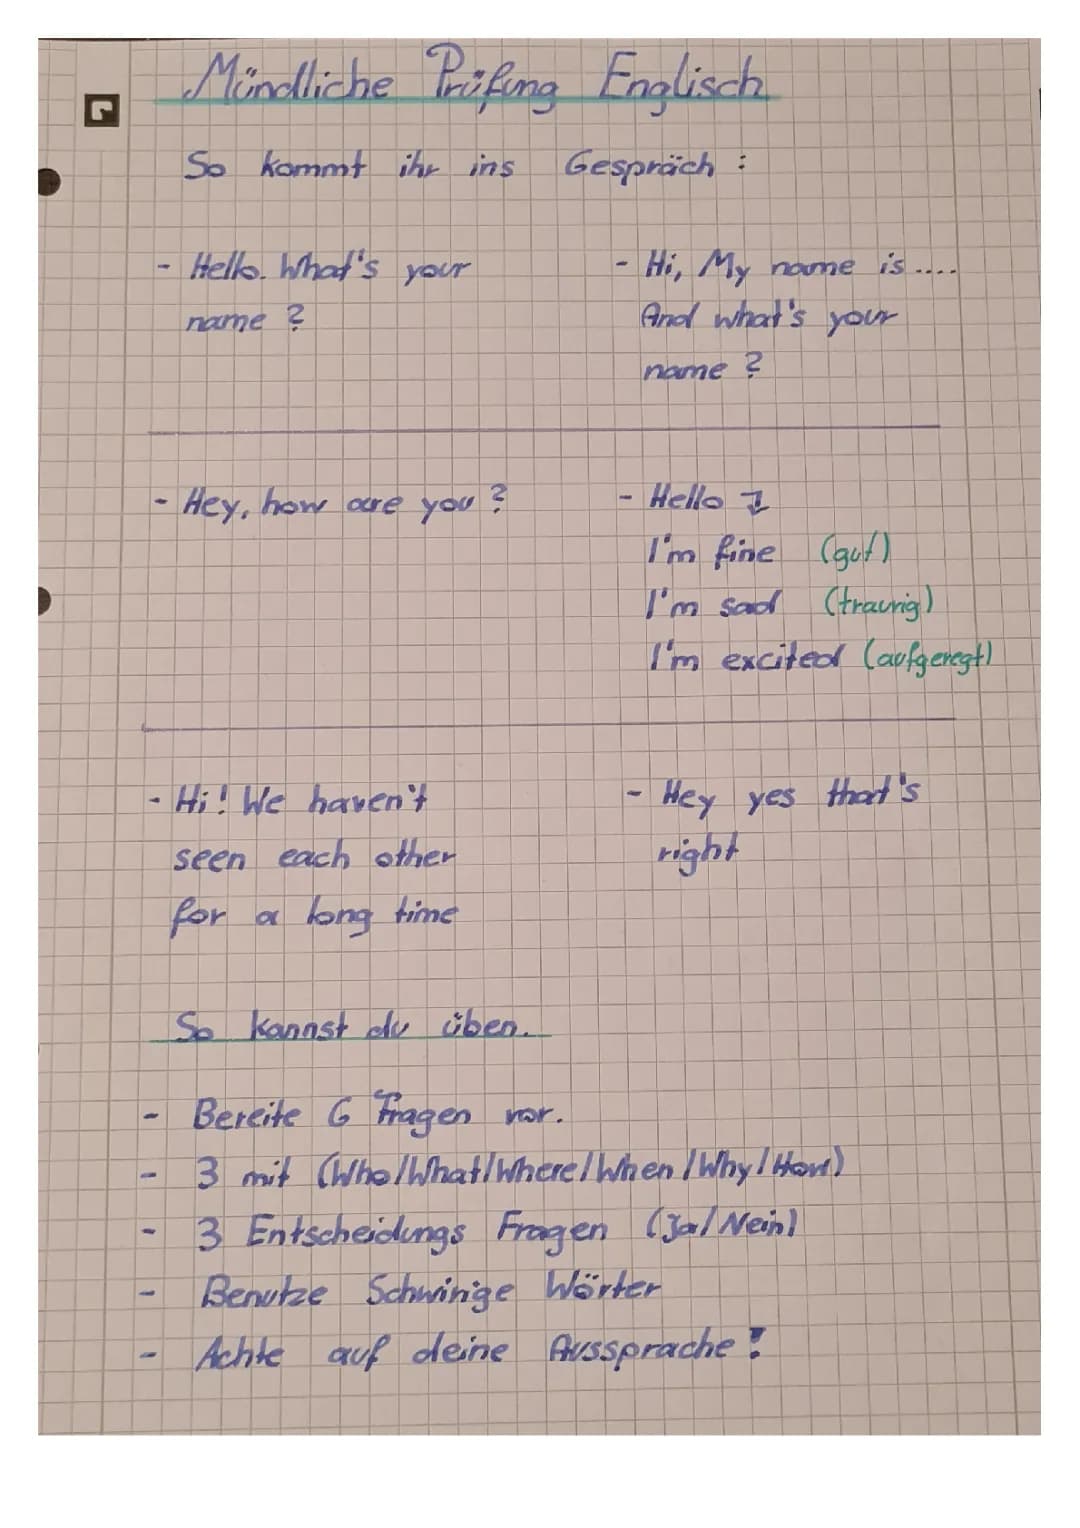 Mündliche Prüfung Englisch
So kommt ihr ins Gespräch :
- Hello. What's your
name ?
- Hi, My name is ....
And what's your
name ?
- Hey, how are you ?
- Hello
I'm fine (gut)
I'm sad (traurig)
I'm excited (aufgeregt)
- Hi! We haven't
seen each other
for a long time
- Hey yes that's
right
So kannst du üben.
- Bereite 6 Fragen vor.
- 3 mit (Who/What/Where/When/Why/How)
- 3 Entscheidungs Fragen (Ja/Nein)
- Benutze Schwirige Wörter
- Achte auf deine Aussprache !